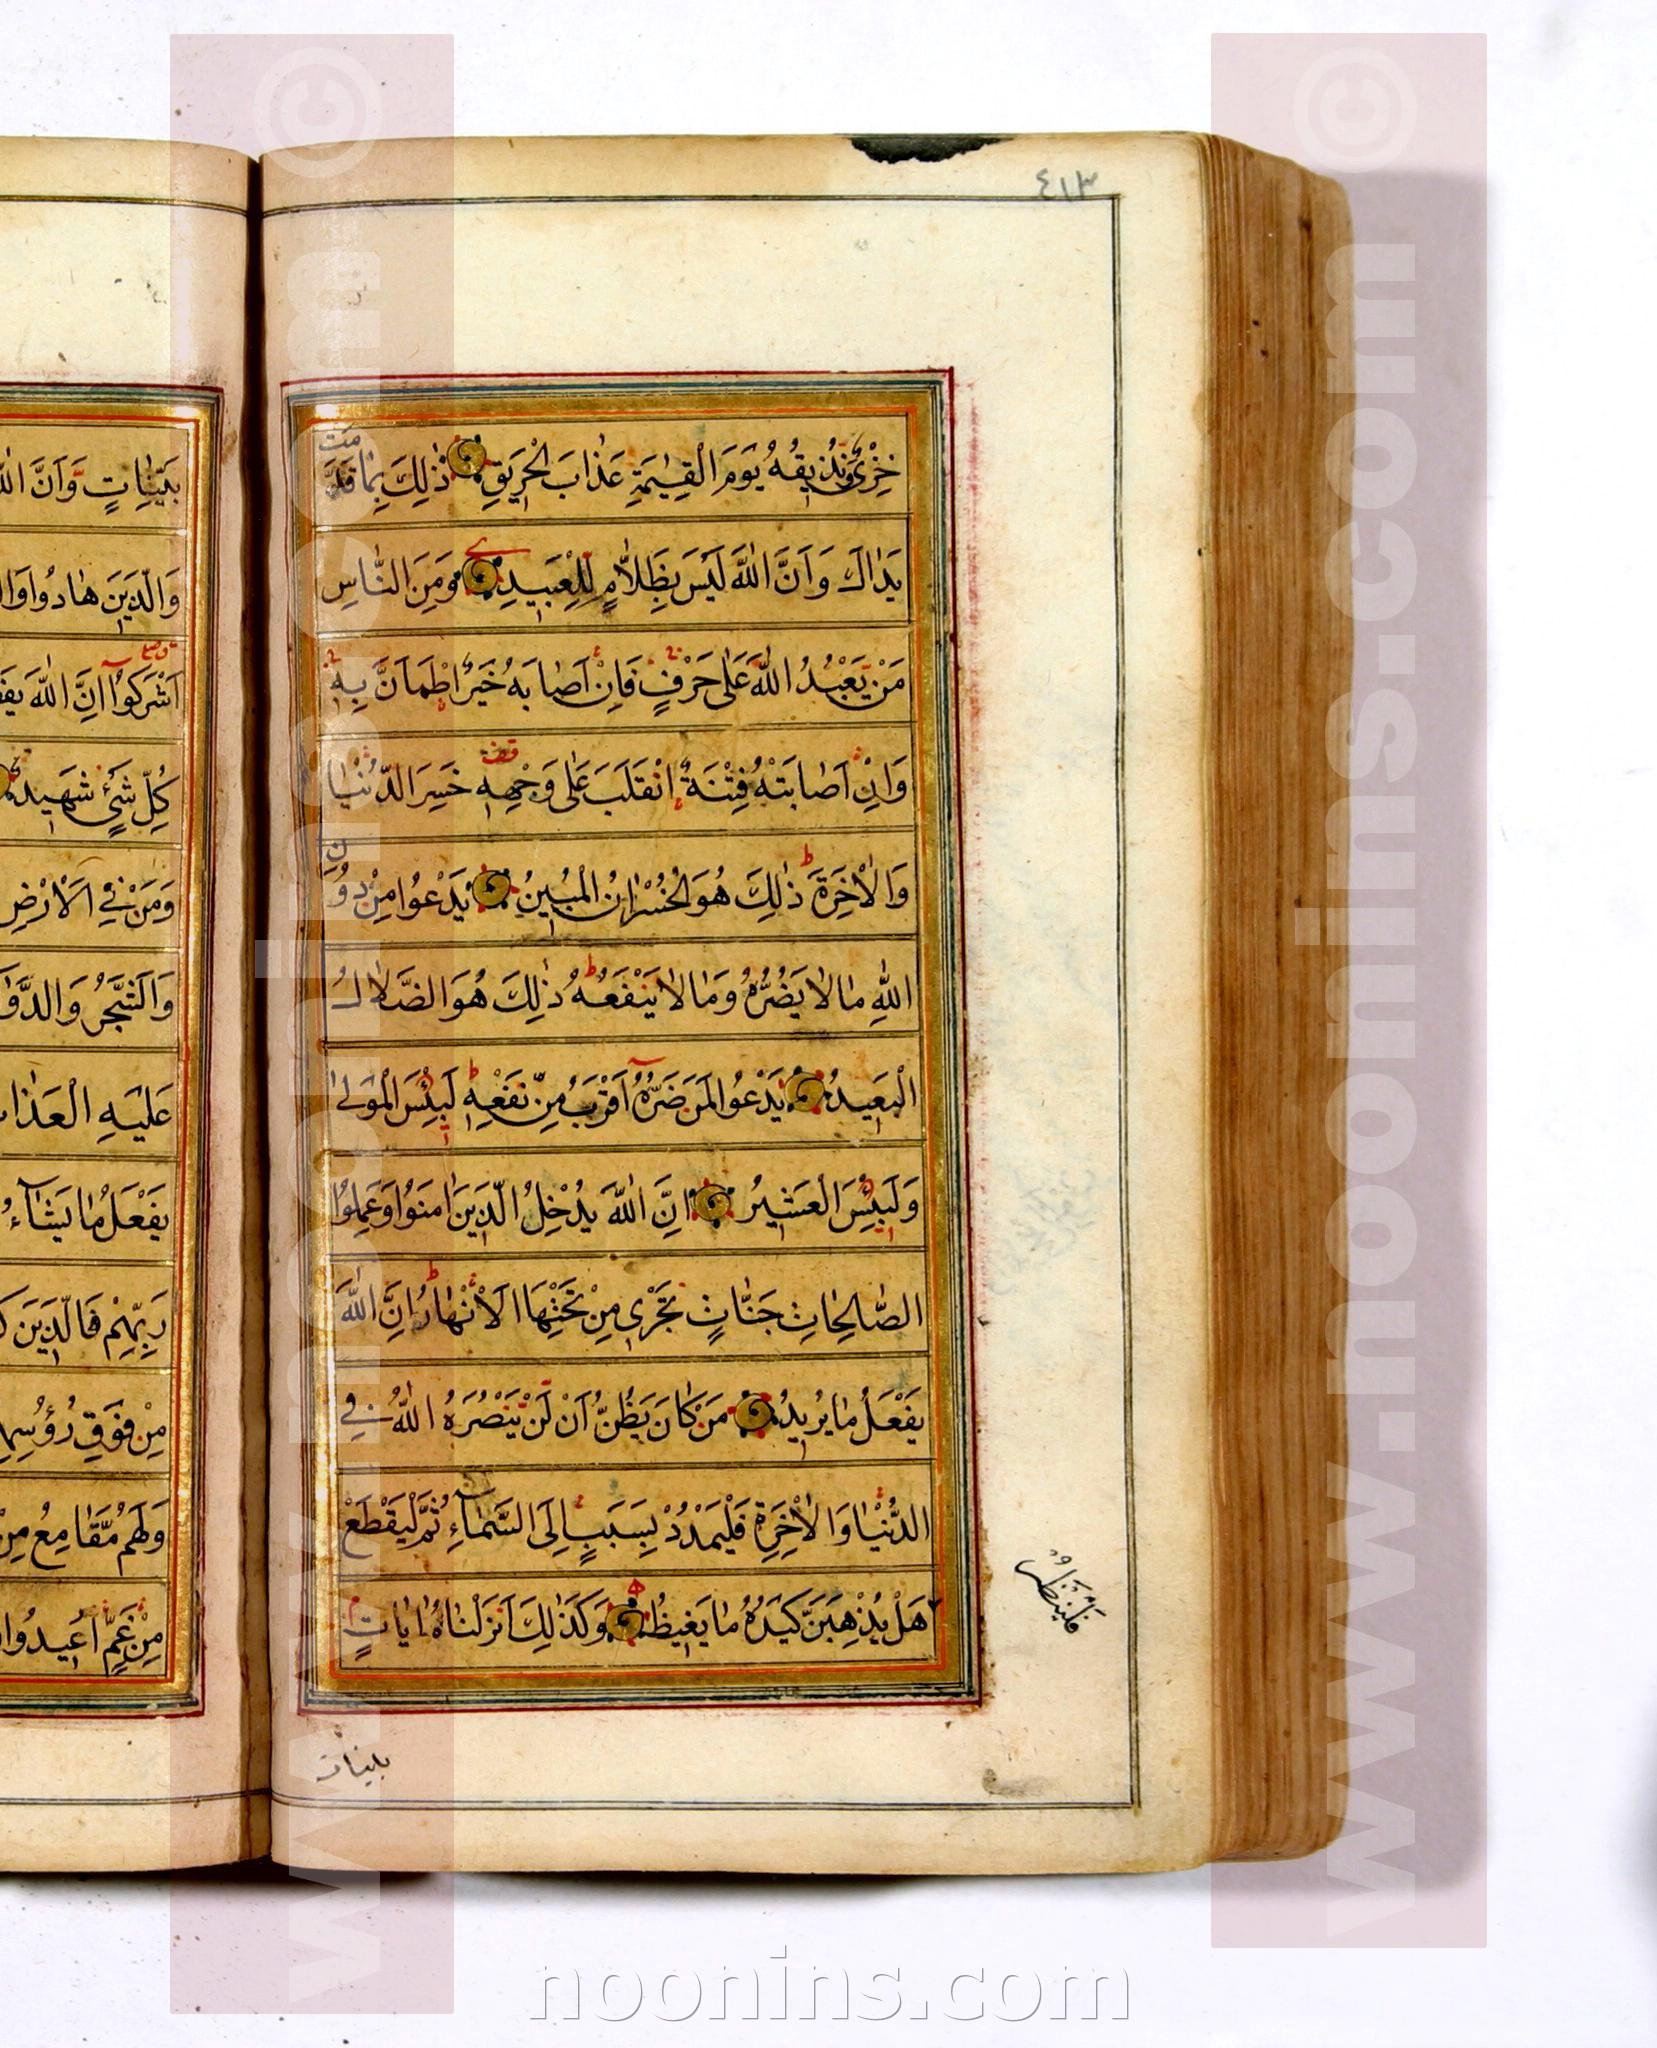 ٤١٣
خِزْىٌ وَنُذِيقُهُ يَوْمَ الْقِيٰمَةِ عَذَابَ الْحَرِيقِ ذٰلِكَ بِمَا قَدَّمَتْ
يَدَاكَ وَاَنَّ اللّٰهَ لَيْسَ بِظَلَّامٍ لِلْعَبِيدِ وَمِنَ النَّاسِ
مَنْ يَعْبُدُ اللّٰهَ عَلٰى حَرْفٍ فَاِنْ اَصَابَهُ خَيْرٌ اطْمَاَنَّ بِهِ
وَاِنْ اَصَابَتْهُ فِتْنَةٌ انْقَلَبَ عَلٰى وَجْهِهِ خَسِرَ الدُّنْيَا
وَالْاٰخِرَةَ ذٰلِكَ هُوَ الْخُسْرَانُ الْمُبِينُ يَدْعُوا مِنْ دُونِ
اللّٰهِ مَا لَا يَضُرُّهُ وَمَا لَا يَنْفَعُهُ ذٰلِكَ هُوَ الضَّلَالُ
الْبَعِيدُ يَدْعُوا لَمَنْ ضَرُّهُ اَقْرَبُ مِنْ نَفْعِهِ لَبِئْسَ الْمَوْلٰى
وَلَبِئْسَ الْعَشِيرُ اِنَّ اللّٰهَ يُدْخِلُ الَّذِينَ اٰمَنُوا وَعَمِلُوا
الصَّالِحَاتِ جَنَّاتٍ تَجْرِى مِنْ تَحْتِهَا الْاَنْهَارُ اِنَّ اللّٰهَ
يَفْعَلُ مَا يُرِيدُ مَنْ كَانَ يَظُنُّ اَنْ لَنْ يَنْصُرَهُ اللّٰهُ فِى
الدُّنْيَا وَالْاٰخِرَةِ فَلْيَمْدُدْ بِسَبَبٍ اِلَى السَّمَاءِ ثُمَّ لْيَقْطَعْ
فَلْيَنْظُرْ
هَلْ يُذْهِبَنَّ كَيْدُهُ مَا يَغِيظُ وَكَذٰلِكَ اَنْزَلْنَاهُ اٰيَاتٍ
بينات
بَيِّنَاتٍ وَاَنَّ
وَالَّذِينَ هَادُوا
اَشْرَكُوا اِنَّ اللّٰهَ
كُلِّ شَىْءٍ شَهِيدٌ
وَمَنْ فِى الْاَرْضِ
وَالشَّجَرُ
عَلَيْهِ الْعَذَابُ
يَفْعَلُ مَا يَشَاءُ
رَبِّهِمْ فَالَّذِينَ
مِنْ فَوْقِ رُؤُسِهِمُ
وَلَهُمْ مَقَامِعُ مِنْ
مِنْ غَمٍّ اُعِيدُوا
www.noonins.com ©
www.noonins.com ©
noonins.com